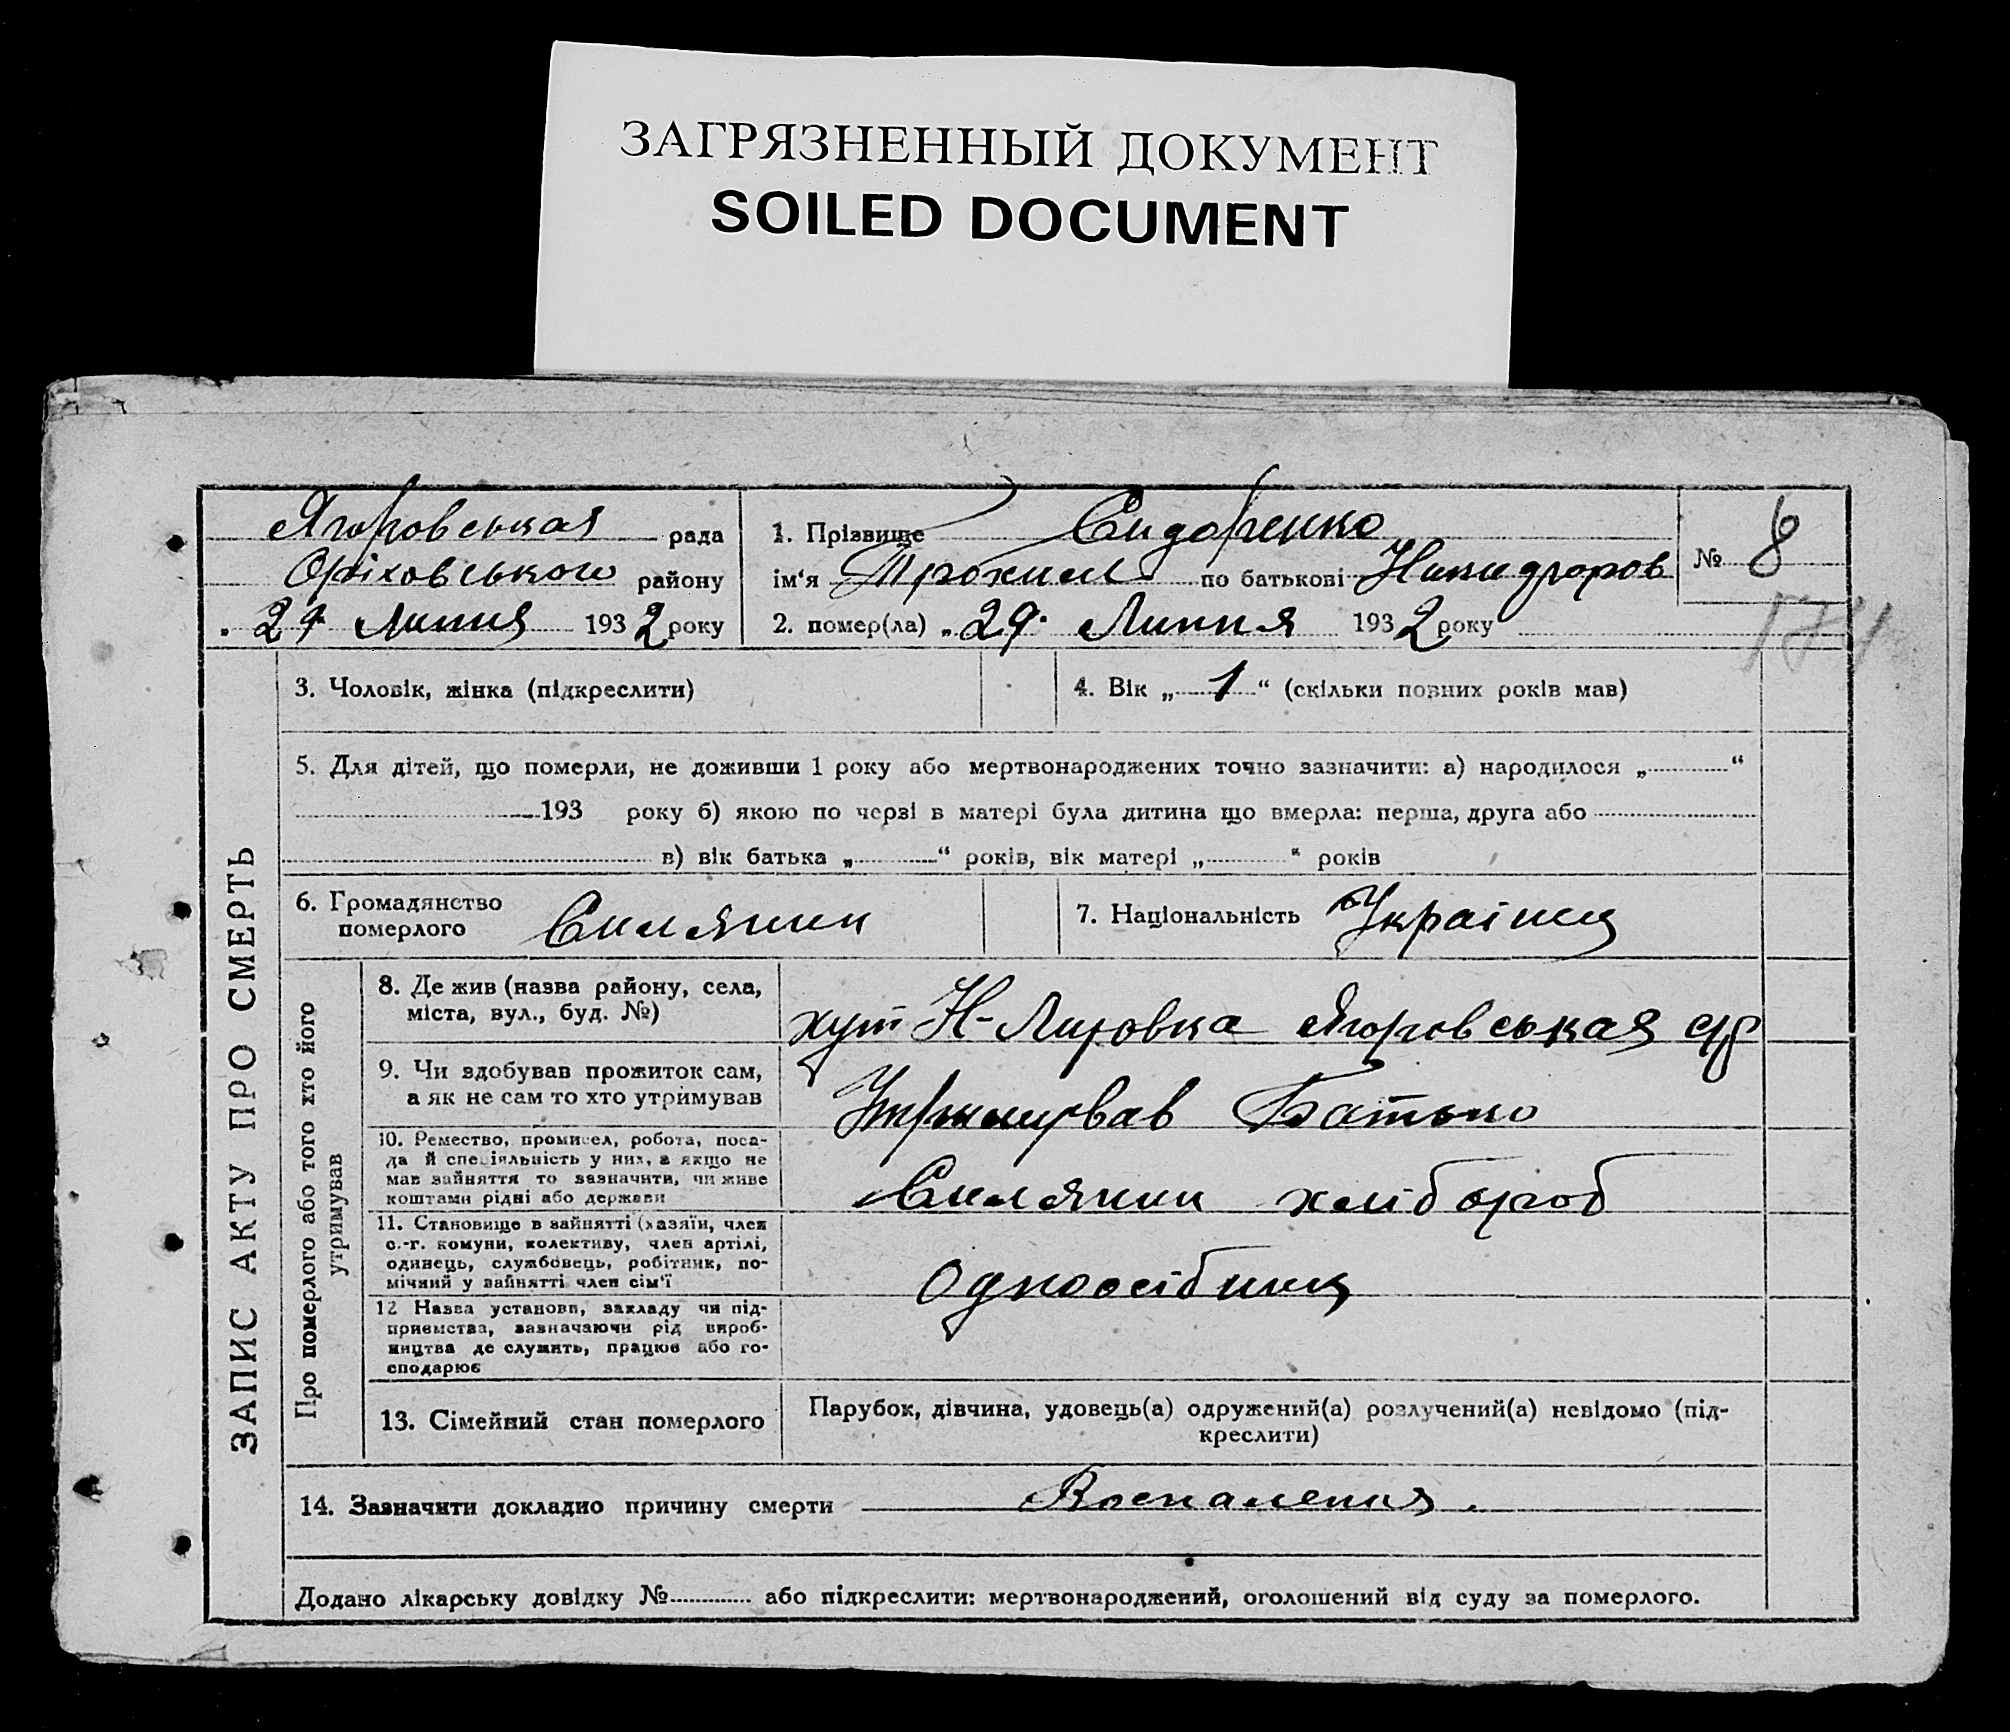 ЗАГРЯЗНЕННЫЙ ДОКУМЕНТ
SOILED DOCUMENT
Ягоровськая рада
Оріховського району
29 Липня 1932 року
1. Прізвище Сидоренко
ім'я Трохим по батькові Никидфоров
2. помер(ла) „29" Липня 1932 року
№ 8
3. Чоловік, жінка (підкреслити)
4. Вік „1" (скільки повних років мав)
5. Для дітей, що померли, не доживши 1 року або мертвонароджених точно зазначити: а) народилося „ "
193 року б) якою по черзі в матері була дитина що вмерла: перша, друга або
в) вік батька „ " років, вік матері „ " років
6. Громадянство
померлого Силянин
7. Національність Украінц
ЗАПИС АКТУ ПРО СМЕРТЬ
Про померлого або того хто його
утримував
8. Де жив (назва району, села,
міста, вул., буд. №)
хут Н-Лировка Ягоровськая с/р
9. Чи здобував прожиток сам,
а як не сам то хто утримував
Утримував Батько
10. Ремество, промисел, робота, поса-
да й спеціяльність у них, а якщо не
мав зайняття то зазначити, чи живе
коштами рідні або держави
Силянин хліб ороб
11. Становище в зайнятті (хазяїн, член
с.-г. комуни, колективу, член артілі,
одинець, службовець, робітник, по-
мічний у зайнятті член сім'ї
Одноосібниц
12 Назва установи, закладу чи під-
приємства, зазначаючи рід вироб-
ництва де служить, працює або го-
сподарює
13. Сімейний стан померлого
Парубок, дівчина, удовець(а) одружений(а) розлучений(а) невідомо (під-
креслити)
14. Зазначити докладно причину смерти Воспаления.
Додано лікарську довідку № або підкреслити: мертвонароджений, оголошений від суду за померлого.